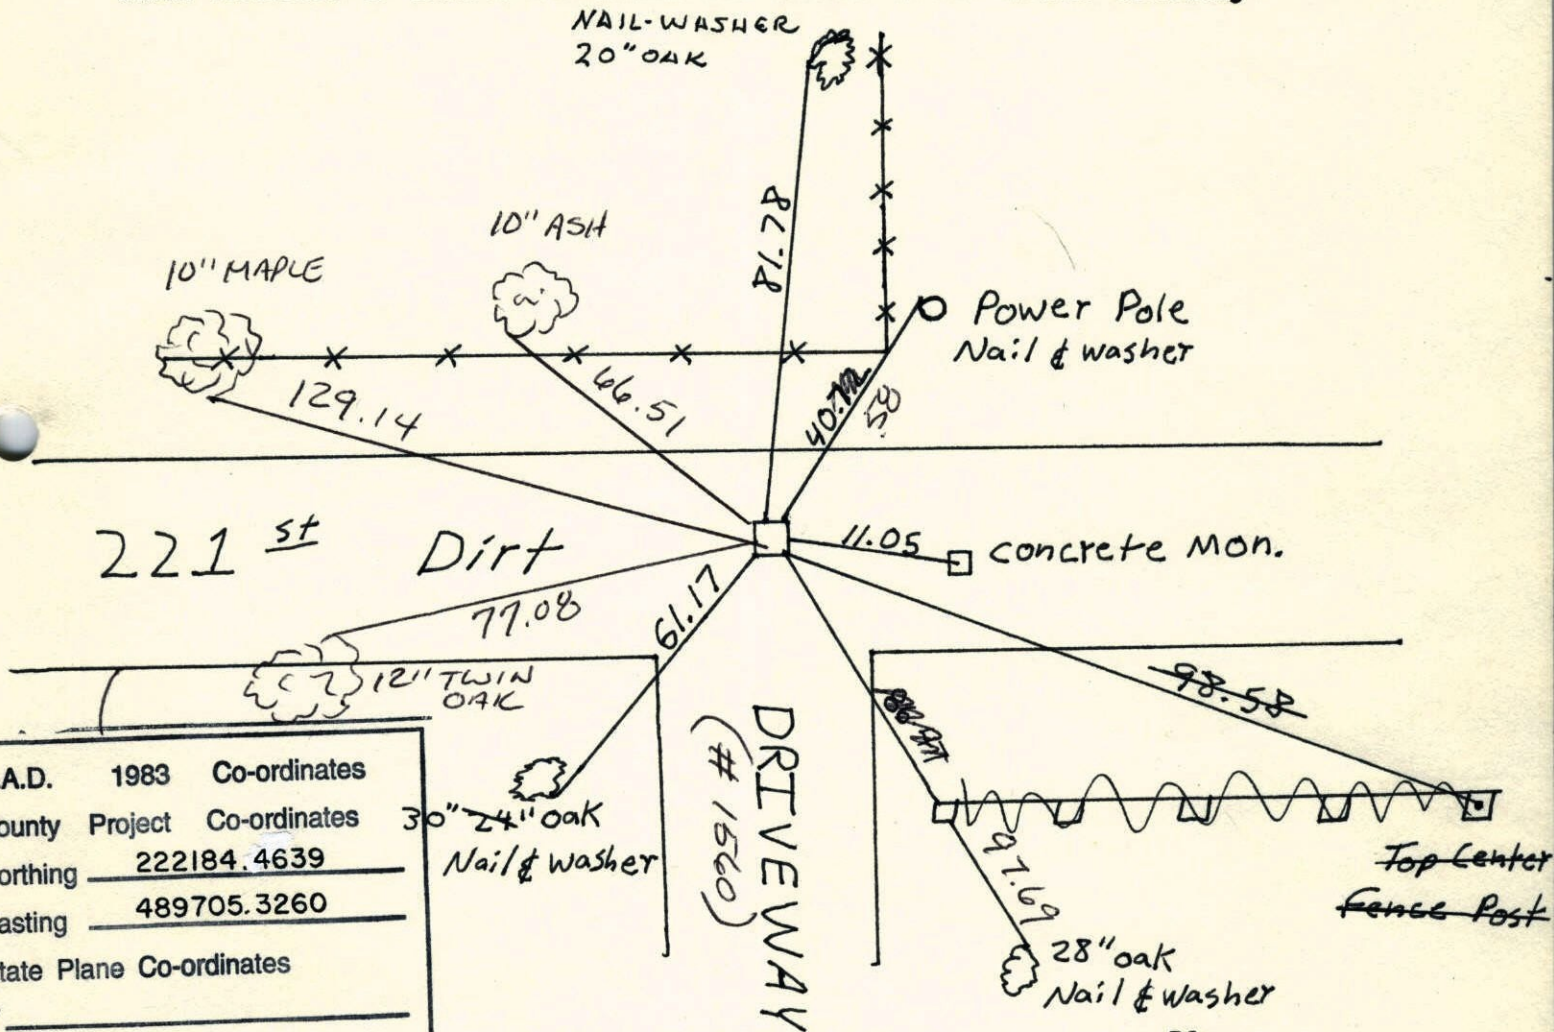 NAIL-WASHER
20" OAK
87.78
10" ASH
10" MAPLE
Power Pole
Nail & washer
129.14
66.51
40.
.58
221 st Dirt
11.05
concrete Mon.
77.08
61.17
12" TWIN
OAK
98.58
DRIVEWAY
(# 1560)
30" 24" oak
Nail & washer
97.69
Top Center
Fence Post
28" oak
Nail & washer
.A.D. 1983 Co-ordinates
ounty Project Co-ordinates
orthing 222184.4639
asting 489705.3260
tate Plane Co-ordinates